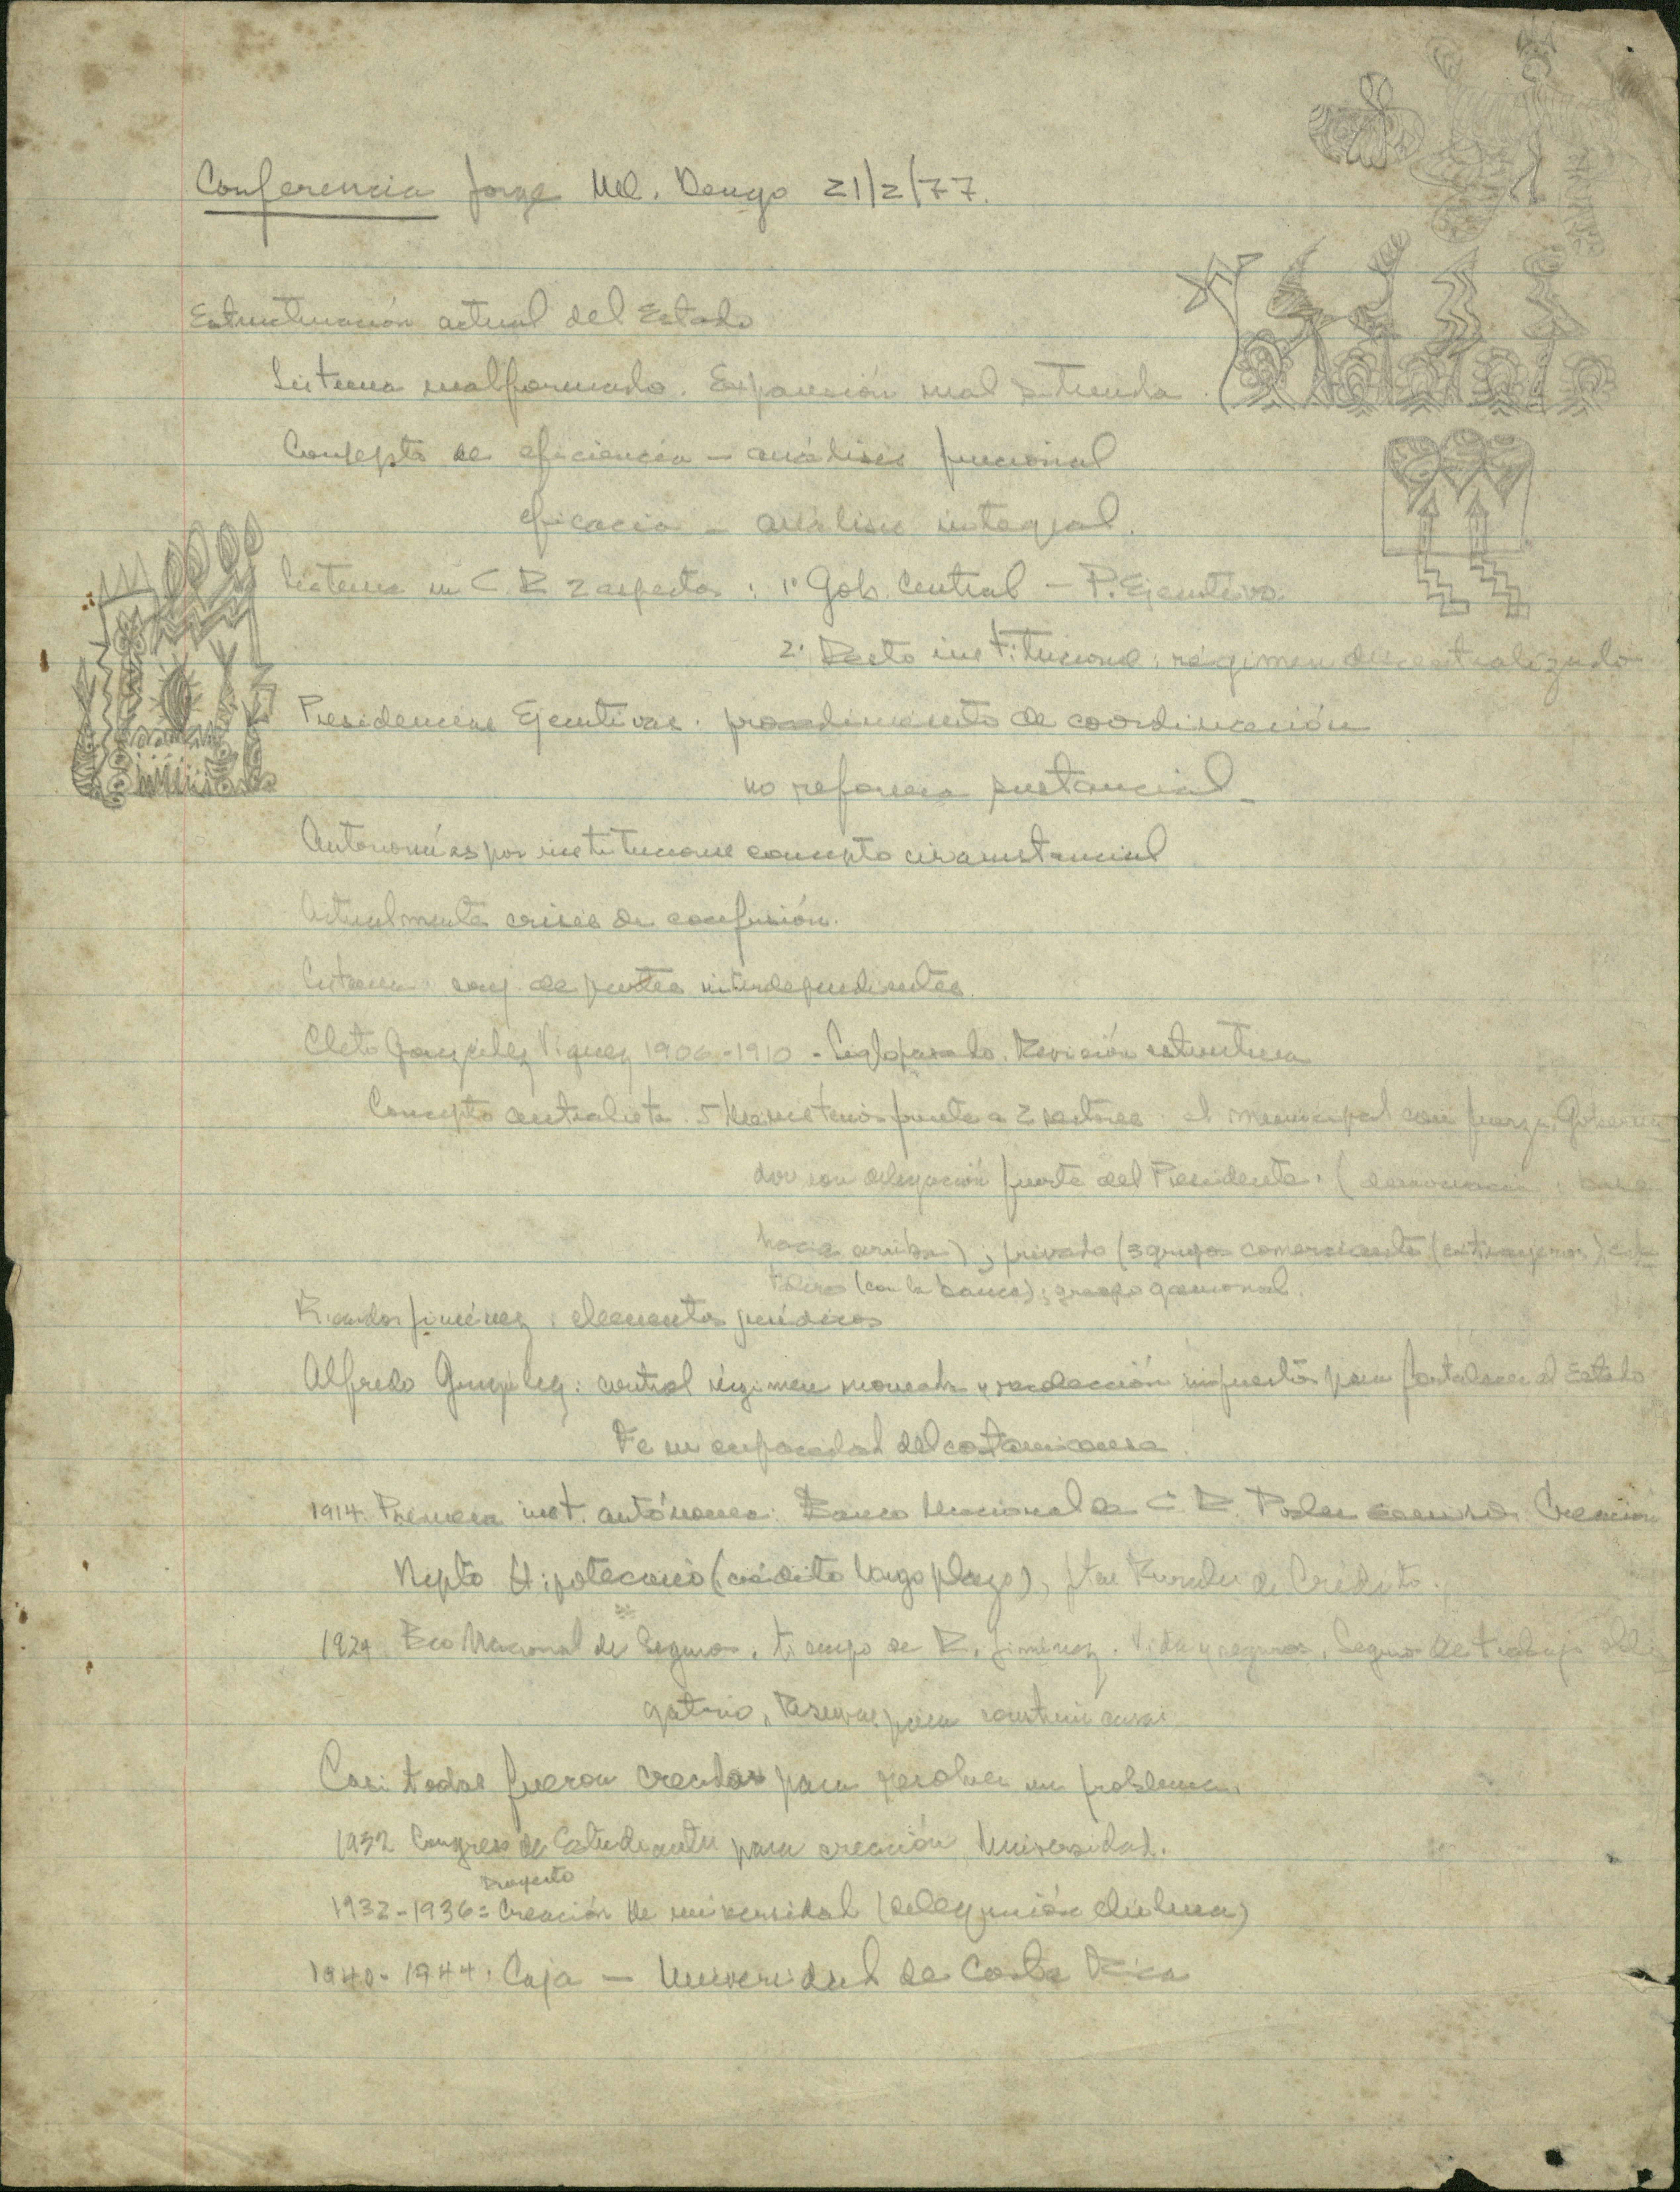 Conferencia Jorge Ml. Dengo 21/2/77.
Estructuración actual del Estado
Sistema malformado. Expansión mal sostenida.
Concepto de eficiencia - análisis funcional
eficacia - análisis integral.
Sistema en C.R 2 aspectos: 1º Gob. Central - P. Ejecutivo.
2º Resto institucional: régimen descentralizado
Presidencias Ejecutivas. procedimiento de coordinación
no reforma sustancial -
Autonomías por instituciones concepto circunstancial
Actualmente crisis de confusión.
Sistema conj. de partes interdependientes.
Cleto González Víquez 1906-1910 - Siglo pasado. Revisión estructura
Concepto centralista. 5 Ministerios frente a 2 sectores el municipal con fuerza, Goberna
dor con delegación fuerte del Presidente. (democracia: base
hacia arriba); privado (3 grupos comerciante (extranjeros)
(con la banca); grupo gamonal.
Ricardo Jiménez: elementos jurídicos
Alfredo González: control régimen moneda y recolección impuestos para fortalecer el Estado
Fe en capacidad del costarricense.
1914 Primera inst. autónoma: Banco Nacional de C.R. Poder emisor. Creación
Depto Hipotecario (crédito largo plazo), Jtas Rurales de Crédito.
1924 Bco Nacional de Seguros, tiempo de R. Jiménez. Vida y seguros. Seguro de trabajo obli
gatorio, Reservas para construir casas
Casi todas fueron creadas para resolver un problema.
1932 Congreso de Estudiantes para creación Universidad.
Proyecto
1932-1936= Creación de universidad (delegación chilena)
1940-1944: Caja - Universidad de Costa Rica